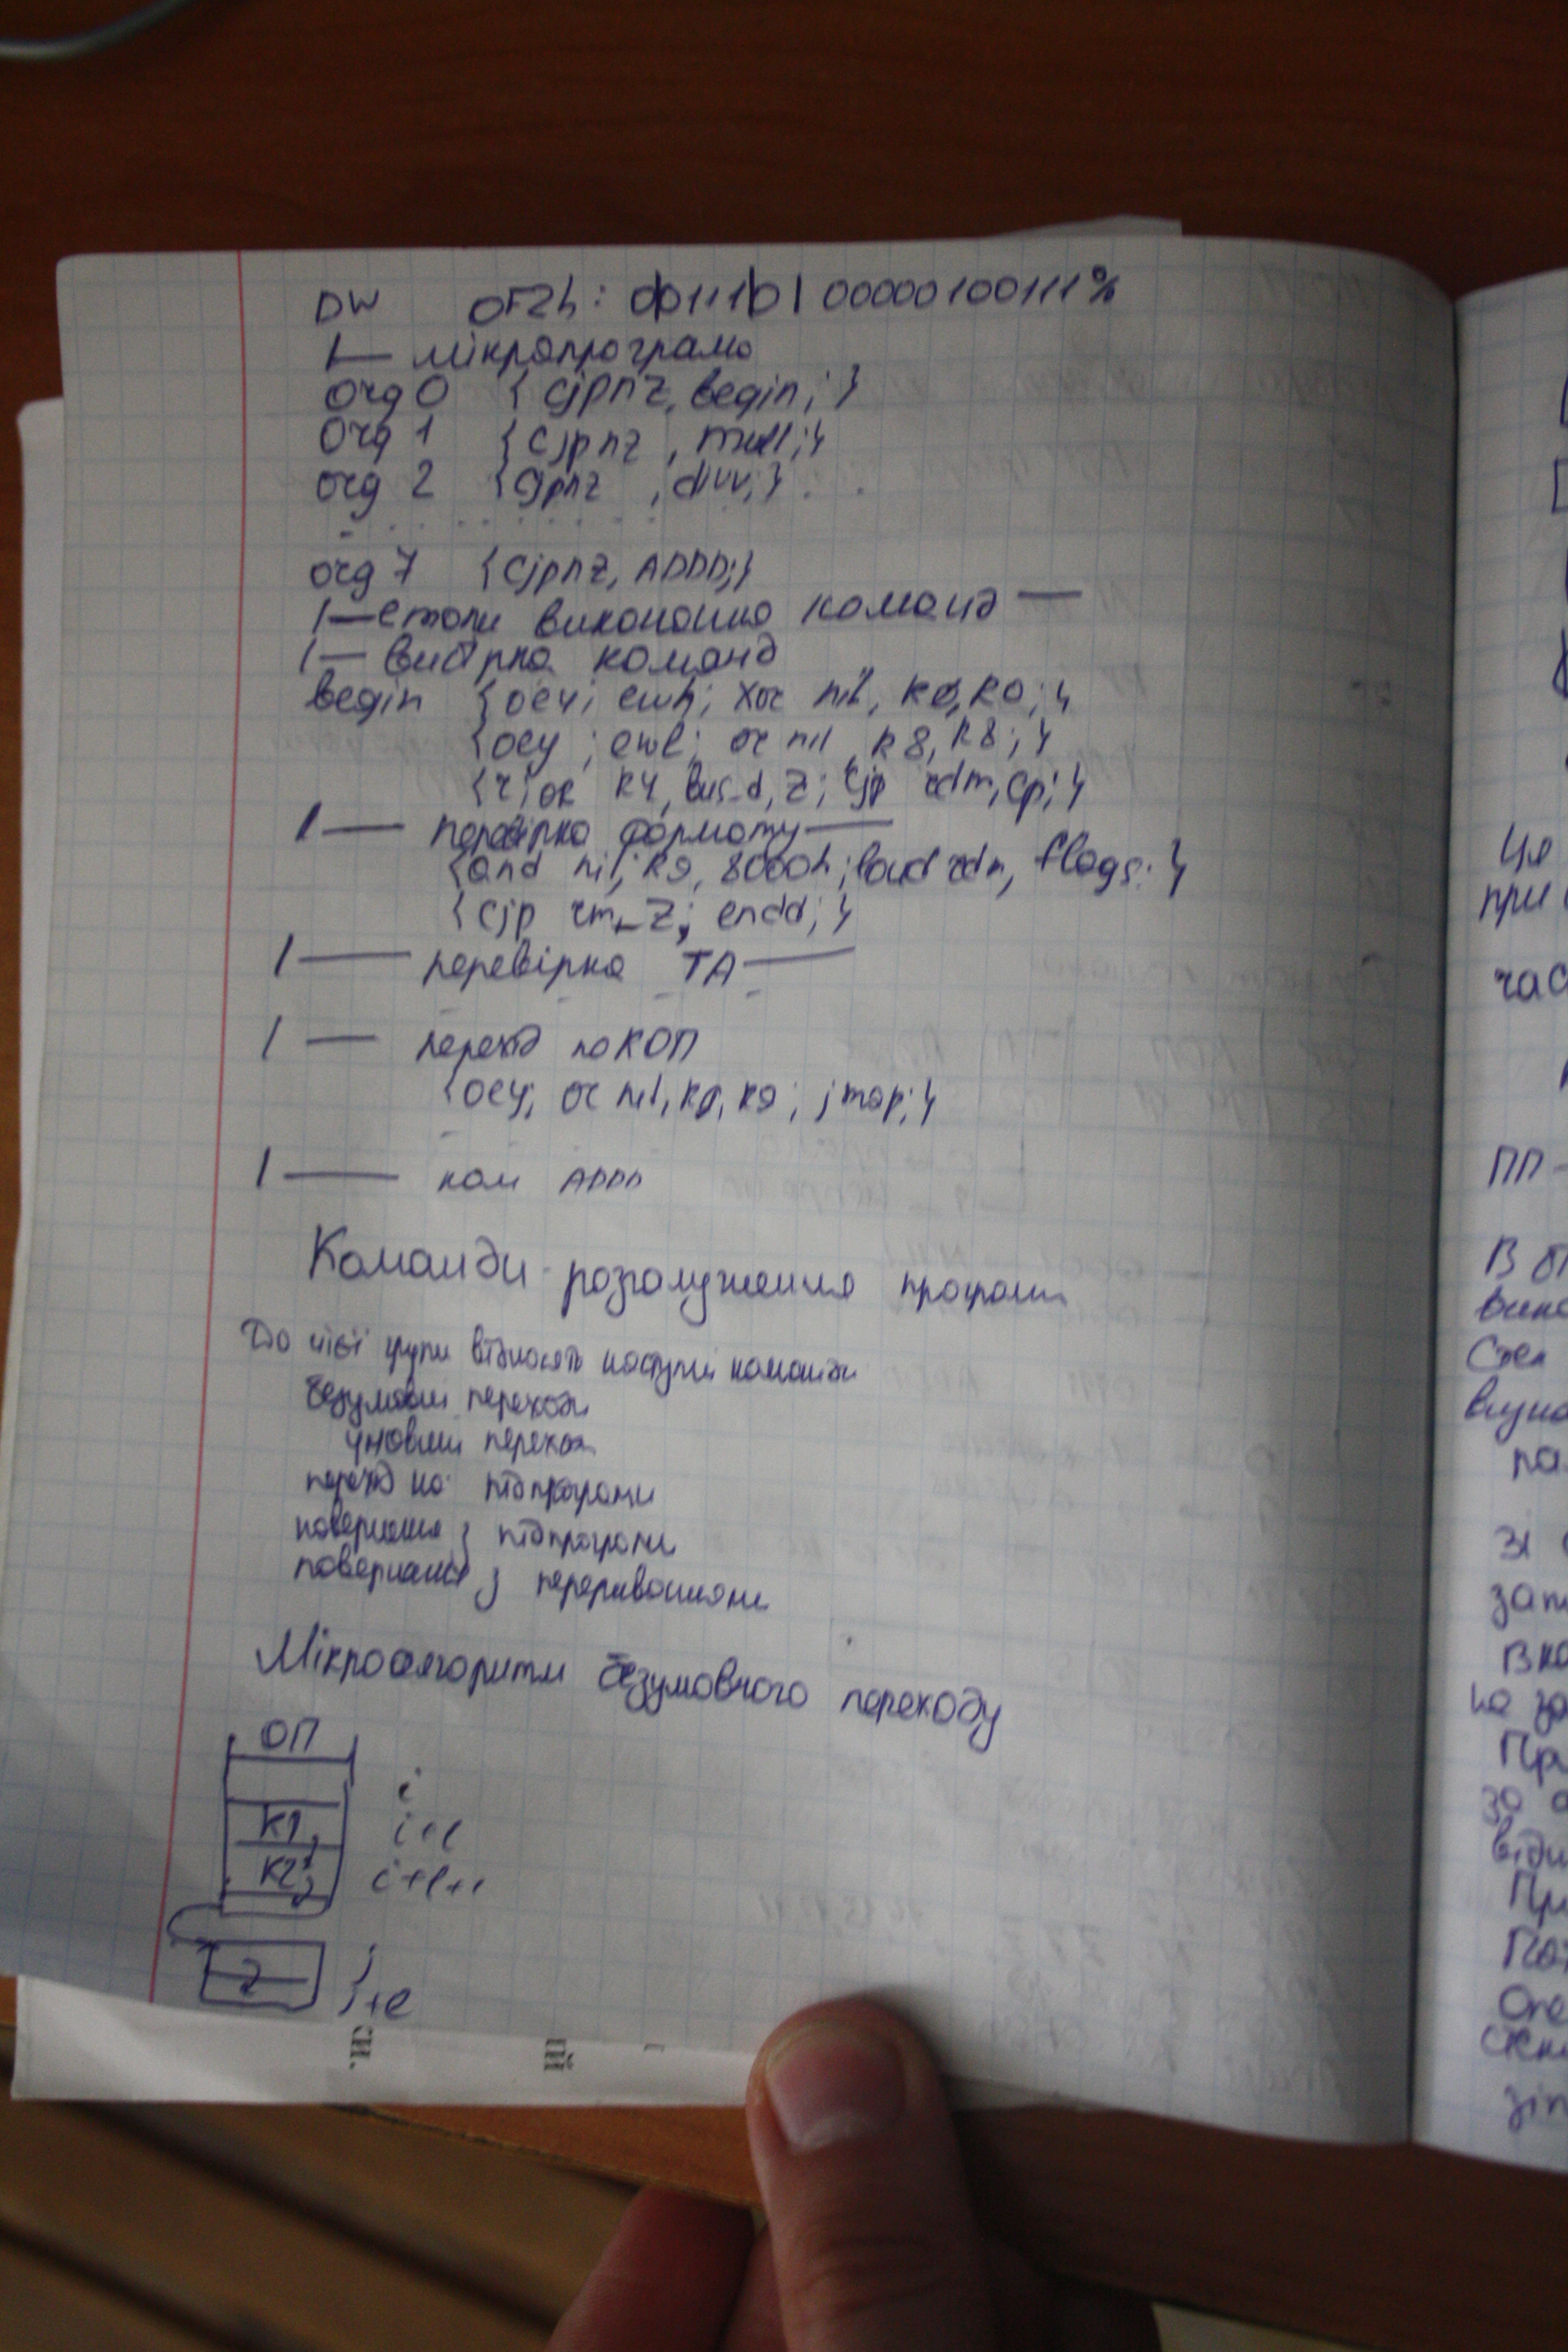 DW 0F2h: 0011101 00000100111%
|— мікропрограма
org 0 { cjpnz, begin; }
org 1 { cjpnz , mull; }
org 2 { cjpnz , divv; }
org 7 { cjpnz, ADDD; }
|— етапи виконання команд —
|— вибірка команд
begin { oey; ewh; xor nil, R0, R0; }
{ oey ; ewl; or nil, R8, R8; }
{ or R4, bus_d, z; cjp rdm, cp; }
|— перевірка формату —
{ and nil, R9, 8000h; load rdm, flags; }
{ cjp rm_z; endd; }
|— перевірка ТА —
|— перехід по КОП
{ oey; or nil, R9, R9; jmap; }
|— ком ADDD
Команди розгалуження програм
До цієї групи відносять наступні команди
безумовні переходи
умовний перехід
перехід на підпрограми
повернення з підпрограми
повернення з переривання
Мікроалгоритм безумовного переходу
ОП
i
К1
i+l
К2
i+l+1
j
j+l
си.
ций
Це
при
час
ПП -
В
Стек
па
Зі
на за
При
за
відн
При
Опе